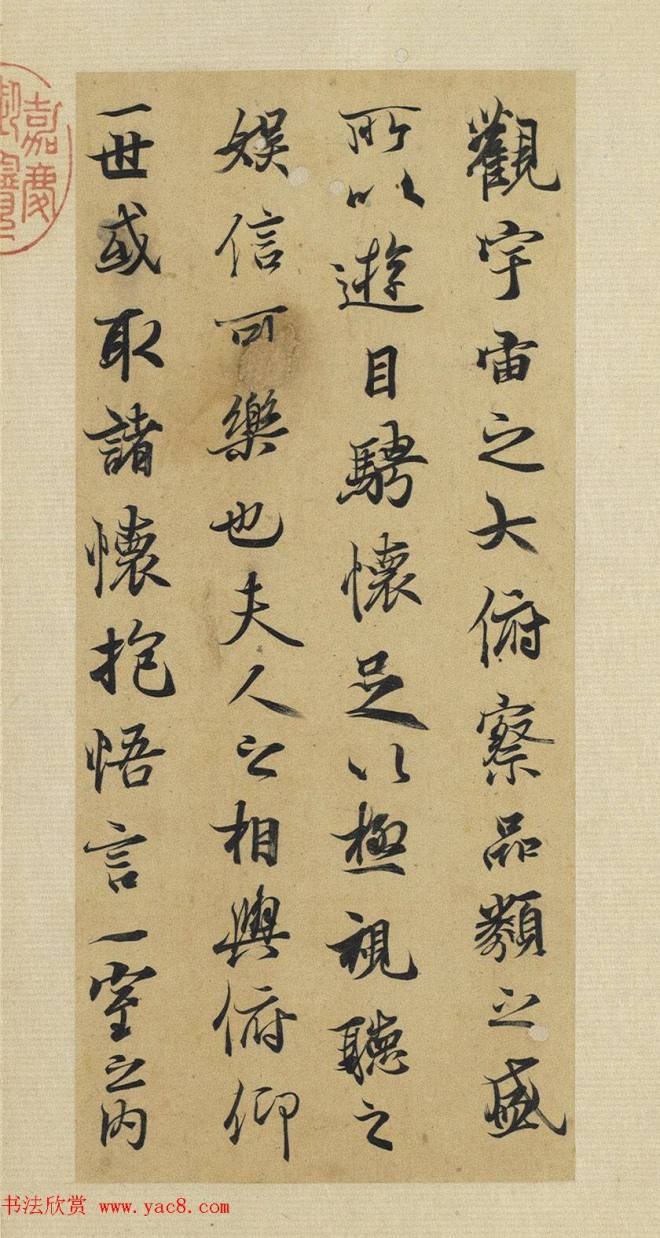 觀宇宙之大俯察品類之盛
所以遊目騁懷足以極視聽之
娛信可樂也夫人之相與俯仰
一世或取諸懷抱悟言一室之內
嘉慶御覽之
书法欣赏 www.yac8.com